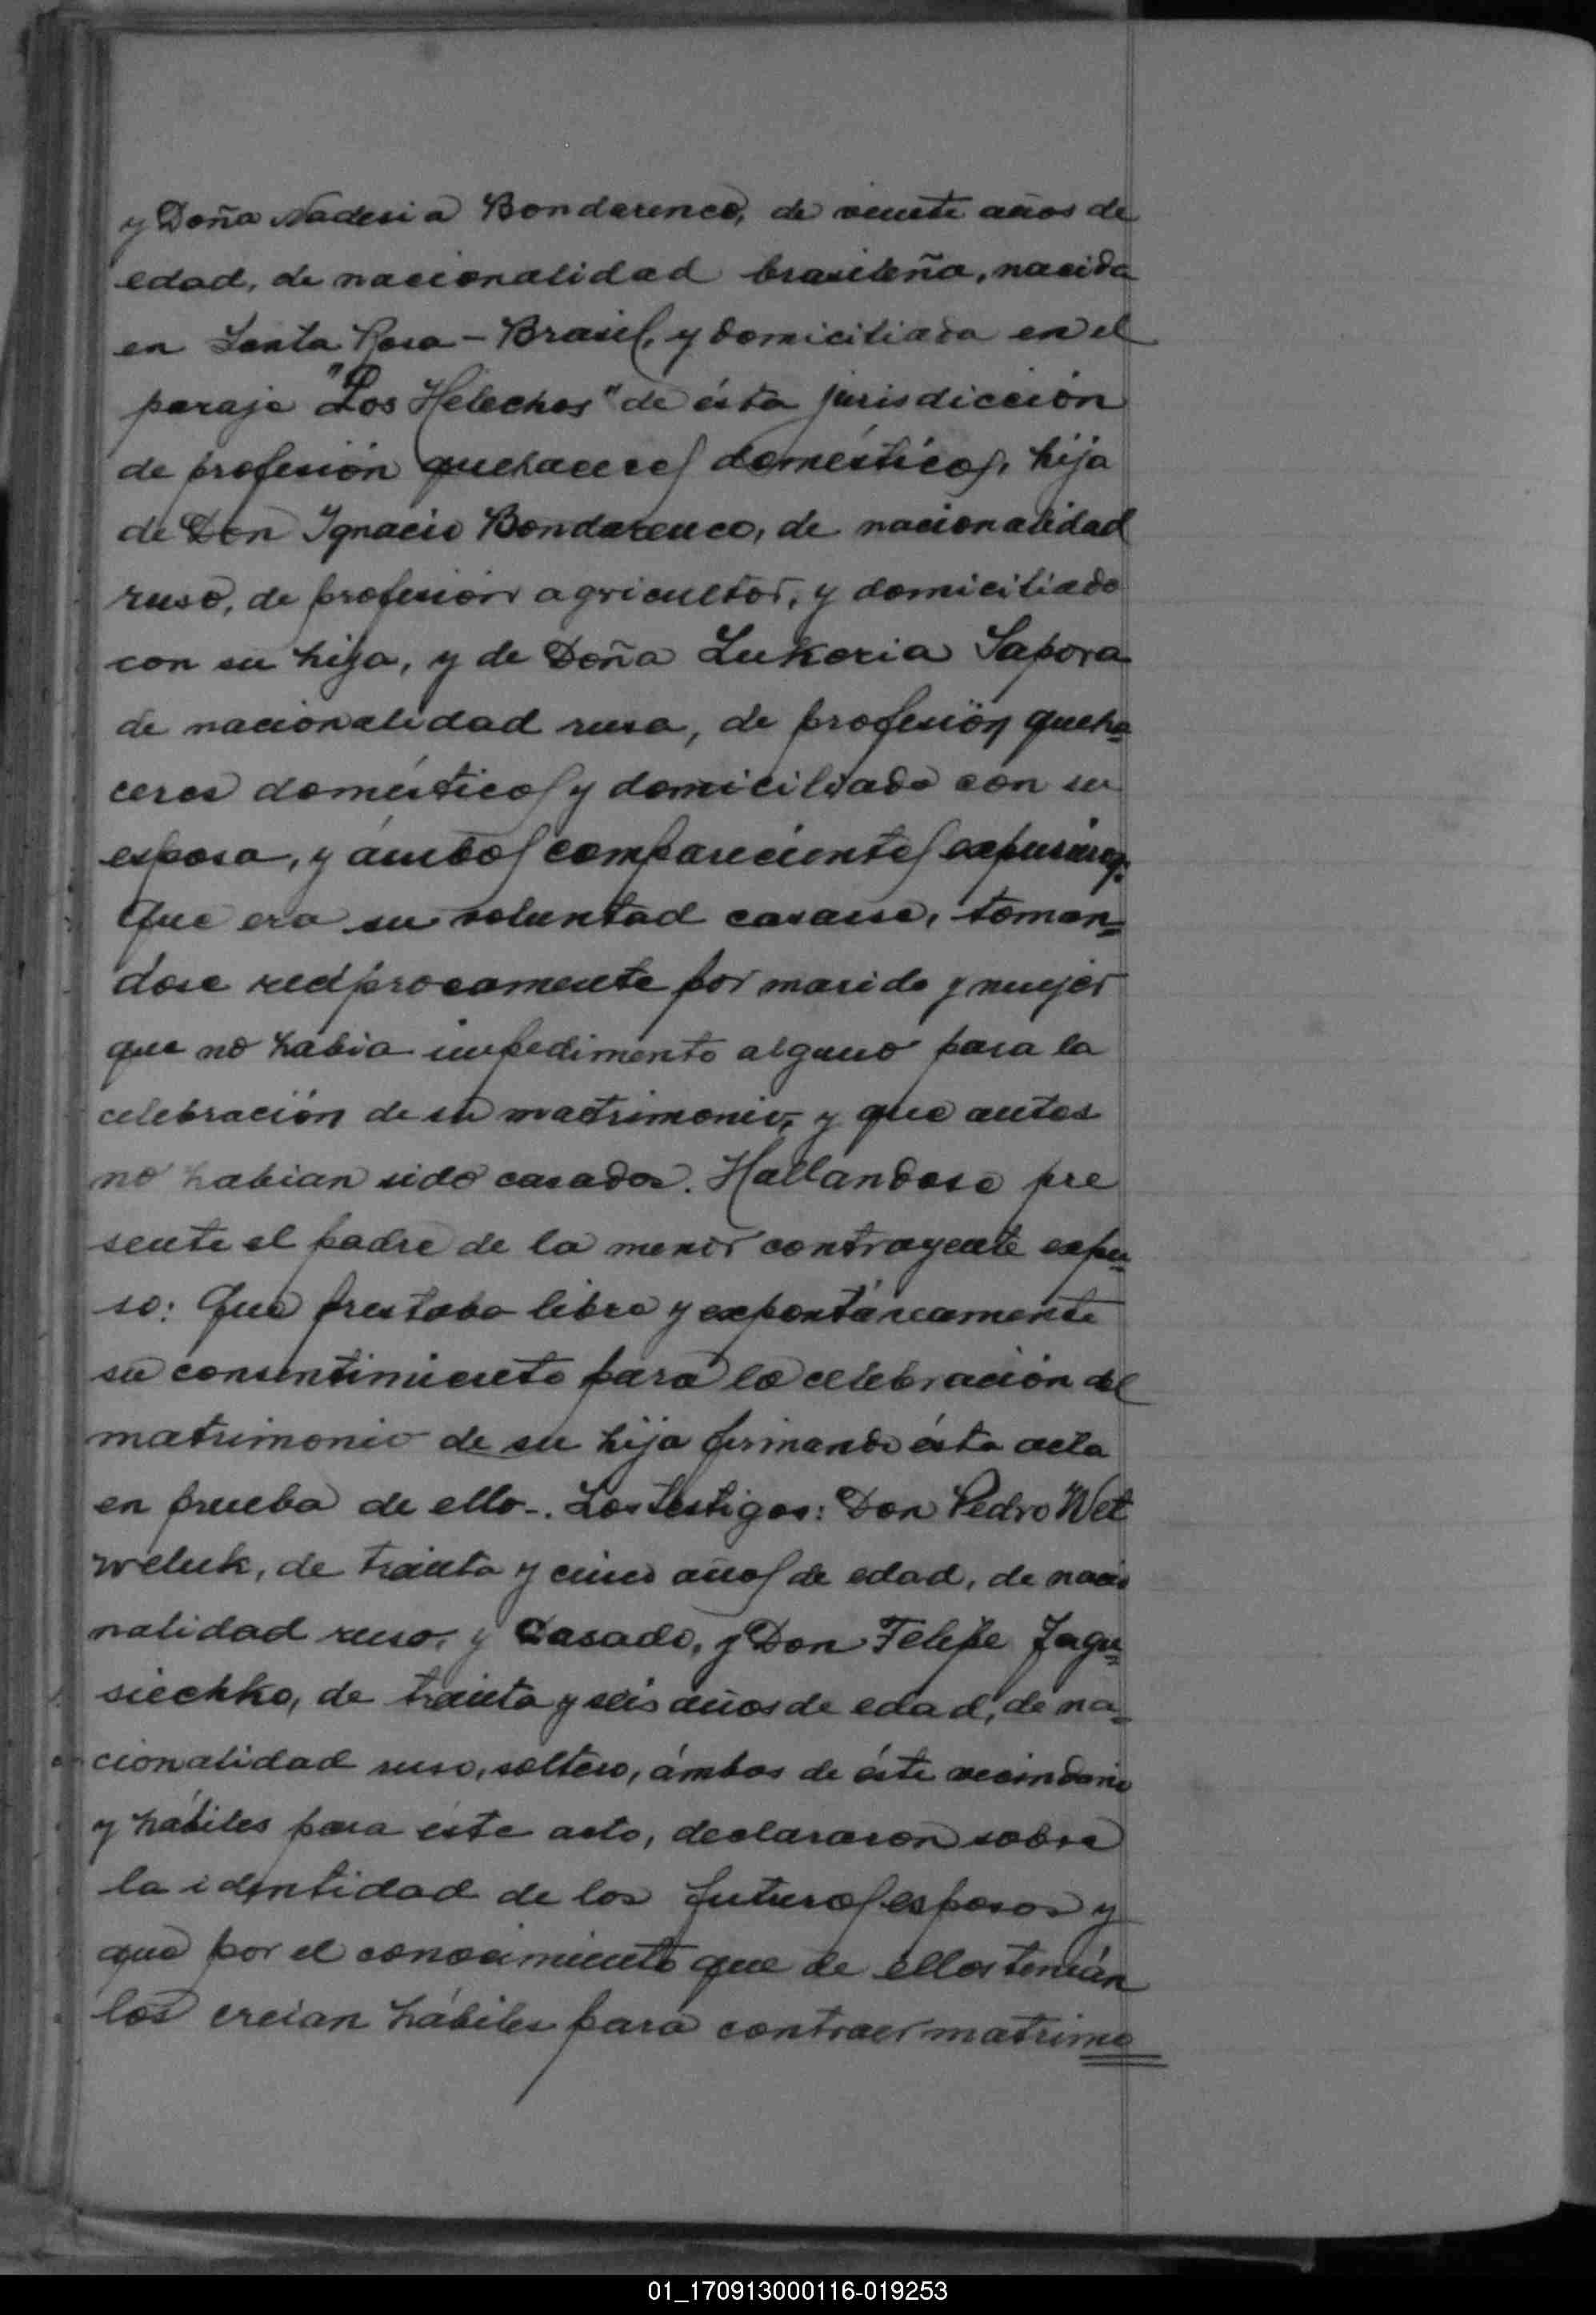 y Doña Nadesia Bondarenco, de veinte años de
edad, de nacionalidad brasileña, nacida
en Santa Rosa - Brasil, y domiciliada en el
paraje "Los Helechos" de ésta jurisdicción
de profesión quehaceres domésticos, hija
de Don Ignacio Bondarenco, de nacionalidad
ruso, de profesión agricultor, y domiciliado
con su hija, y de Doña Lukeria Sapora
de nacionalidad rusa, de profesión queha-
ceres domésticos y domiciliada con su
esposo, y ámbos comparecientes expusieron:
Que era su voluntad casarse, toman=
dose recíprocamente por marido y mujer
que no habia impedimento alguno para la
celebración de su matrimonio, y que antes
no habian sido casados. Hallandose pre
sente el padre de la menor contrayente expu=
so: Que prestaba libre y expontáneamente
su consentimiento para la celebración del
matrimonio de su hija firmando ésta acta
en prueba de ello-. Los testigos: Don Pedro Wet
weluk, de treinta y cinco años de edad, de nacio
nalidad ruso, y Casado, y Don Felipe Jagu=
siechko, de treinta y seis años de edad, de na=
cionalidad ruso, soltero, ámbos de éste vecindario
y hábiles para éste acto, declararon sobre
la identidad de los futuros esposos y
que por el conocimiento que de ellos tenián
los creian hábiles para contraer matrimo
01_170913000116-019253